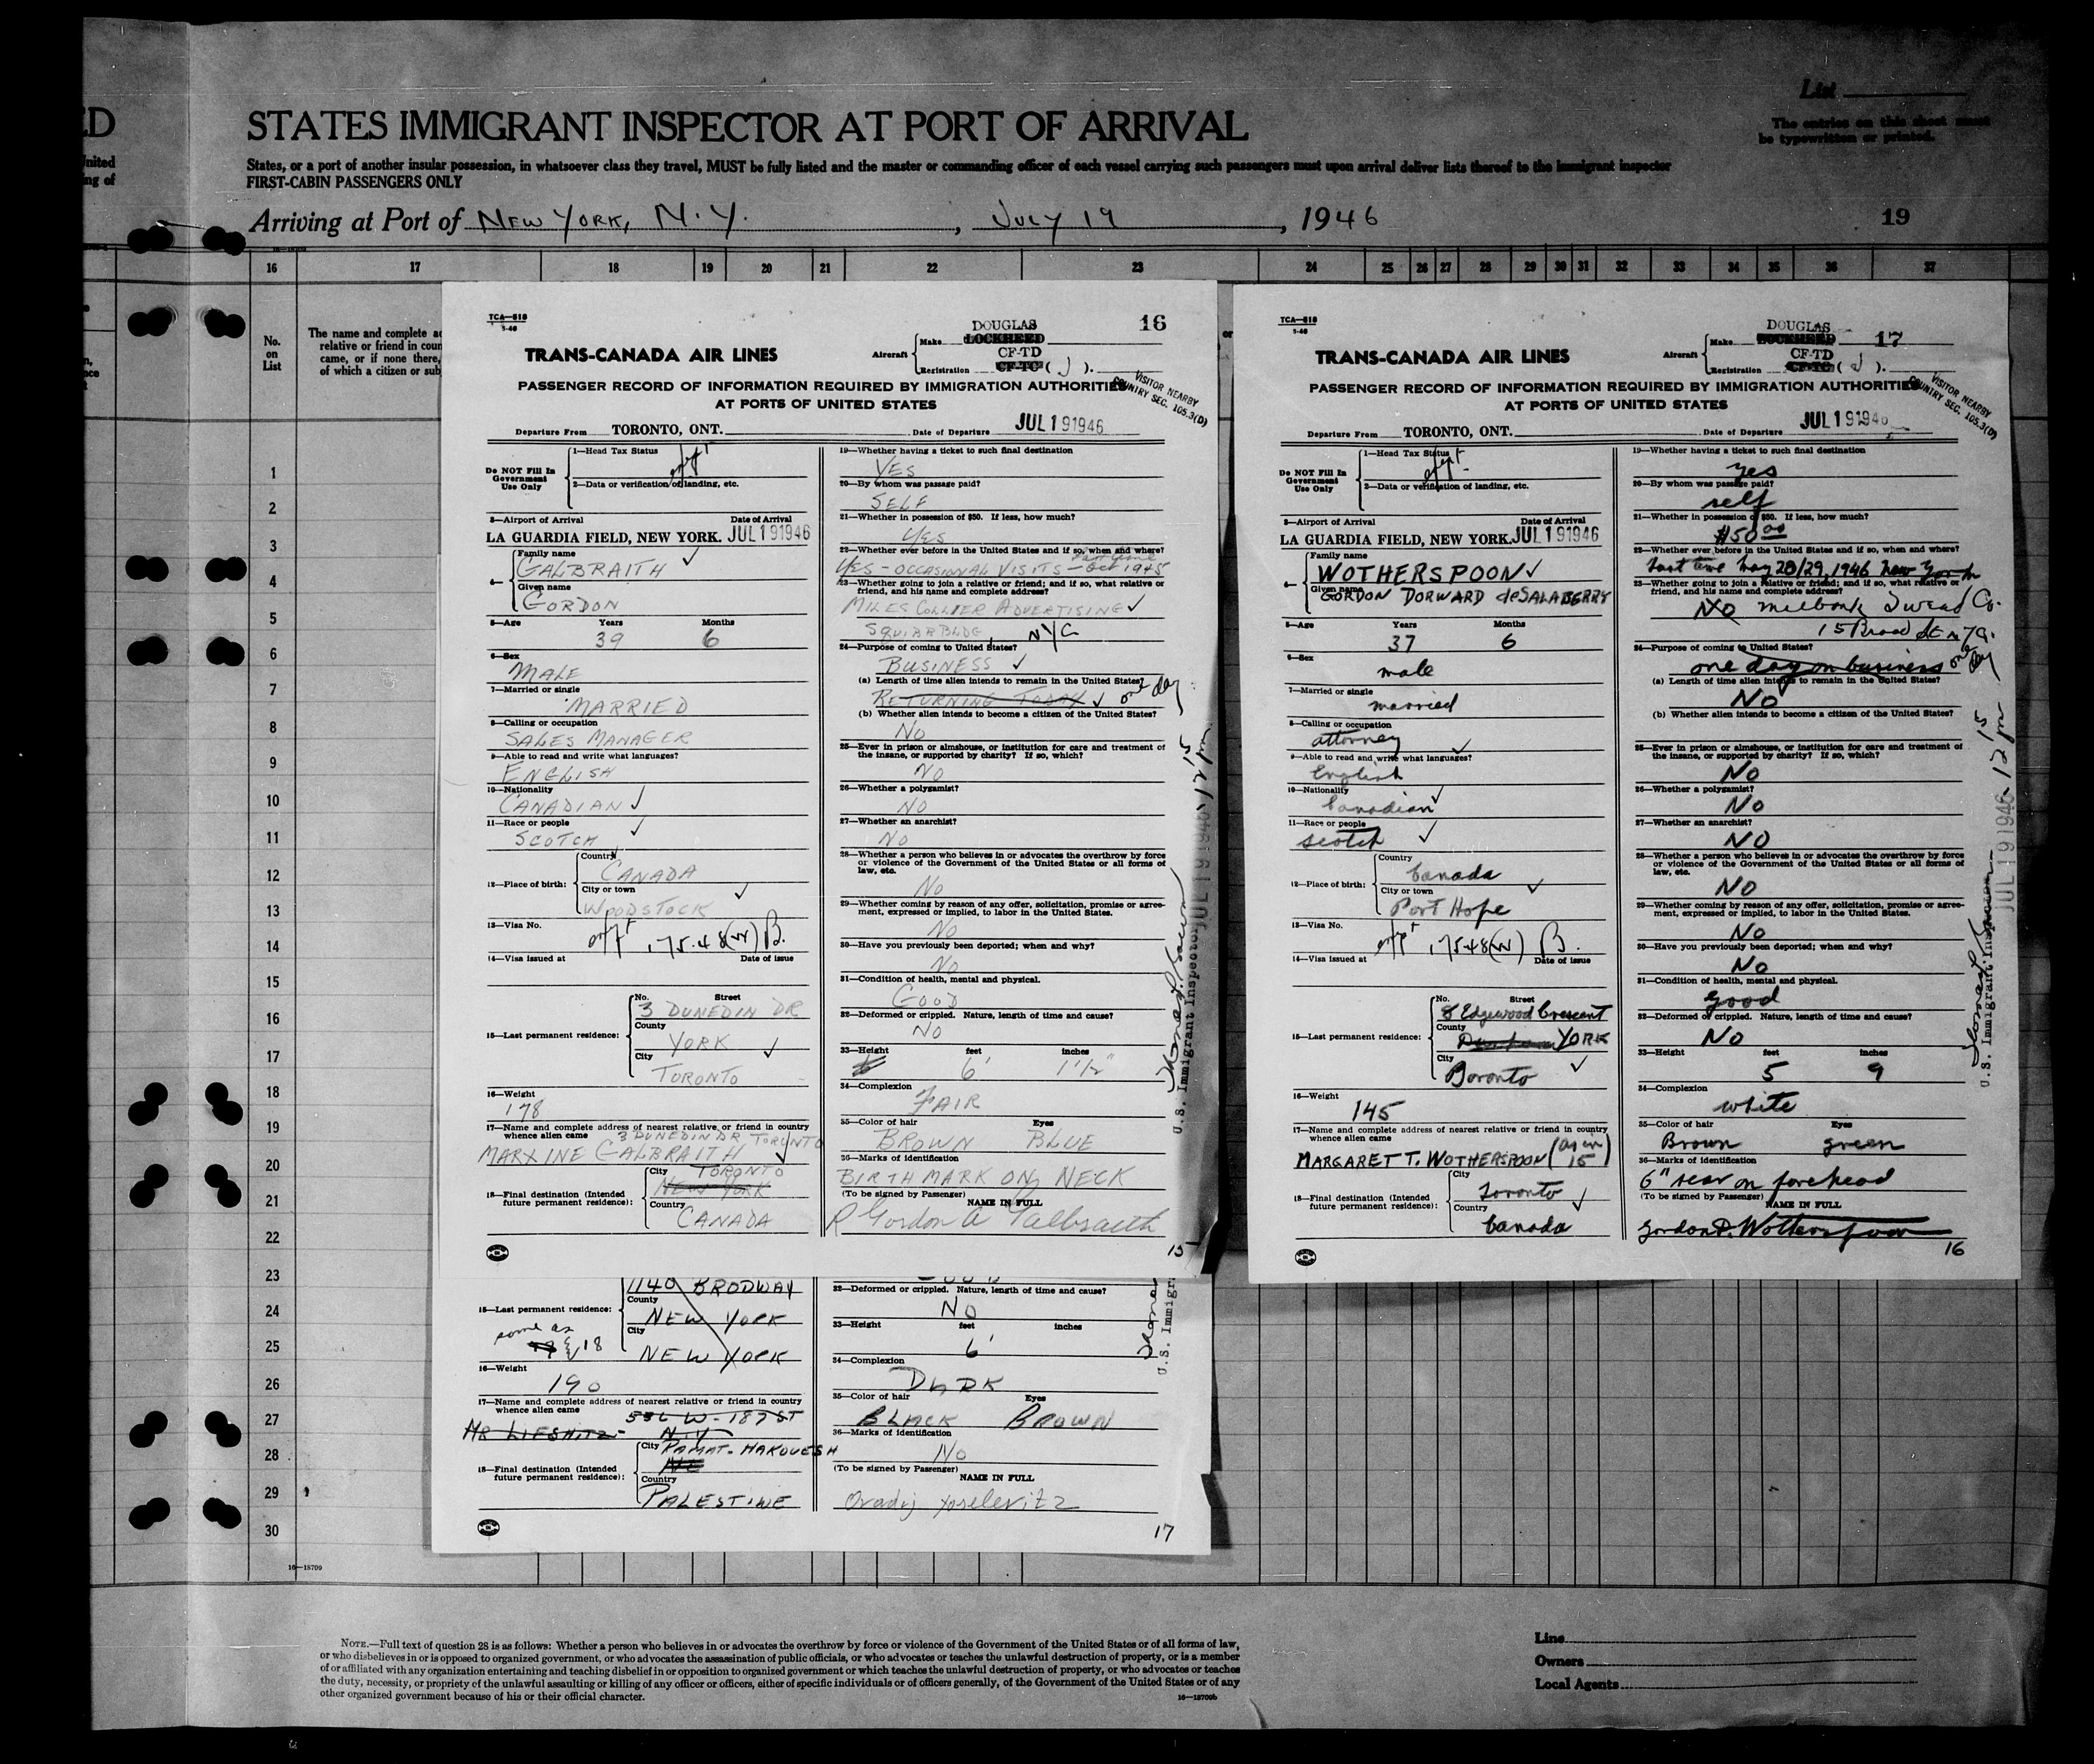 ED
United
ing of
STATES IMMIGRANT INSPECTOR AT PORT OF ARRIVAL
List
The entries on this sheet must
be typewritten or printed.
States, or a port of another insular possession, in whatsoever class they travel, MUST be fully listed and the master or commanding officer of each vessel carrying such passengers must upon arrival deliver lists thereof to the immigrant inspector
FIRST-CABIN PASSENGERS ONLY
Arriving at Port of NEW YORK, N.Y. , JULY 19 , 1946 19
16 17 18 19 20 21 22 23 24 25 26 27 28 29 30 31 32 33 34 35 36 37
No.
on
List
The name and complete ad
relative or friend in coun
came, or if none there,
of which a citizen or sub
or
1
2
3
4
5
6
7
8
9
10
11
12
13
14
15
16
17
18
19
20
21
22
23
24
25
26
27
28
29
30
16—18709
TCA—518
1-46
16
DOUGLAS
Aircraft Make LOCKHEED
CF-TD
Registration CF-TC ( J ).
TRANS-CANADA AIR LINES
PASSENGER RECORD OF INFORMATION REQUIRED BY IMMIGRATION AUTHORITIES
AT PORTS OF UNITED STATES
VISITOR NEARBY
COUNTRY SEC. 105.3(D)
Departure From TORONTO, ONT. Date of Departure JUL 19 1946
Do NOT Fill In
Government
Use Only
1—Head Tax Status
2—Data or verification of landing, etc.
3—Airport of Arrival Date of Arrival
LA GUARDIA FIELD, NEW YORK. JUL 19 1946
4— Family name
GALBRAITH
Given name
GORDON
5—Age Years Months
39 6
6—Sex
MALE
7—Married or single
MARRIED
8—Calling or occupation
SALES MANAGER
9—Able to read and write what languages?
ENGLISH
10—Nationality
CANADIAN
11—Race or people
SCOTCH
12—Place of birth: Country
CANADA
City or town
WOODSTOCK
13—Visa No.
175.48(W) B.
14—Visa issued at Date of issue
15—Last permanent residence: No. Street
3 DUNEDIN DR
County
YORK
City
TORONTO
16—Weight
178
17—Name and complete address of nearest relative or friend in country
whence alien came 3 DUNEDIN DR, TORONTO
MARXINE GALBRAITH
18—Final destination (Intended
future permanent residence):
City TORONTO
NEW YORK
Country
CANADA
19—Whether having a ticket to such final destination
YES
20—By whom was passage paid?
SELF
21—Whether in possession of $50. If less, how much?
YES
22—Whether ever before in the United States and if so, when and where?
last time
YES - OCCASIONAL VISITS - Oct 1945
23—Whether going to join a relative or friend; and if so, what relative or
friend, and his name and complete address?
MILES COLLIER ADVERTISING
SQUIBB BLDG, NYC
24—Purpose of coming to United States?
BUSINESS
(a) Length of time alien intends to remain in the United States?
RETURNING TODAY one day
(b) Whether alien intends to become a citizen of the United States?
NO
25—Ever in prison or almshouse, or institution for care and treatment of
the insane, or supported by charity? If so, which?
NO
26—Whether a polygamist?
NO
27—Whether an anarchist?
NO
28—Whether a person who believes in or advocates the overthrow by force
or violence of the Government of the United States or all forms of
law, etc.
NO
29—Whether coming by reason of any offer, solicitation, promise or agree-
ment, expressed or implied, to labor in the United States.
NO
30—Have you previously been deported; when and why?
NO
31—Condition of health, mental and physical.
GOOD
32—Deformed or crippled. Nature, length of time and cause?
NO
33—Height feet inches
6' 1 1/2"
34—Complexion
FAIR
35—Color of hair Eyes
BROWN BLUE
36—Marks of identification
BIRTHMARK ON NECK
(To be signed by Passenger)
NAME IN FULL
R Gordon A Galbraith
15
U.S. Immigrant Inspector JUL 19 1946 12 15 pm
TCA—518
1-46
DOUGLAS
Aircraft Make LOCKHEED 17
CF-TD
Registration CF-TC ( J ).
TRANS-CANADA AIR LINES
PASSENGER RECORD OF INFORMATION REQUIRED BY IMMIGRATION AUTHORITIES
AT PORTS OF UNITED STATES
VISITOR NEARBY
COUNTRY SEC. 105.3(D)
Departure From TORONTO, ONT. Date of Departure JUL 19 1946
Do NOT Fill In
Government
Use Only
1—Head Tax Status
2—Data or verification of landing, etc.
3—Airport of Arrival Date of Arrival
LA GUARDIA FIELD, NEW YORK. JUL 19 1946
4— Family name
WOTHERSPOON
Given name
GORDON DORWARD deSALABERRY
5—Age Years Months
37 6
6—Sex
male
7—Married or single
married
8—Calling or occupation
attorney
9—Able to read and write what languages?
English
10—Nationality
Canadian
11—Race or people
scotch
12—Place of birth: Country
Canada
City or town
Port Hope
13—Visa No.
175.48(W) B.
14—Visa issued at Date of issue
15—Last permanent residence: No. Street
8 Edgewood Crescent
County
YORK
City
Toronto
16—Weight
145
17—Name and complete address of nearest relative or friend in country
whence alien came
MARGARET T. WOTHERSPOON (as in 15)
18—Final destination (Intended
future permanent residence):
City
Toronto
Country
Canada
19—Whether having a ticket to such final destination
yes
20—By whom was passage paid?
self
21—Whether in possession of $50. If less, how much?
$50 00
22—Whether ever before in the United States and if so, when and where?
last time May 28/29, 1946 New York
23—Whether going to join a relative or friend; and if so, what relative or
friend, and his name and complete address?
NO Milbank Tweed Co.
15 Broad St N.Y.C.
24—Purpose of coming to United States?
one day on business one day
(a) Length of time alien intends to remain in the United States?
NO
(b) Whether alien intends to become a citizen of the United States?
25—Ever in prison or almshouse, or institution for care and treatment of
the insane, or supported by charity? If so, which?
NO
26—Whether a polygamist?
NO
27—Whether an anarchist?
NO
28—Whether a person who believes in or advocates the overthrow by force
or violence of the Government of the United States or all forms of
law, etc.
NO
29—Whether coming by reason of any offer, solicitation, promise or agree-
ment, expressed or implied, to labor in the United States.
NO
30—Have you previously been deported; when and why?
NO
31—Condition of health, mental and physical.
good
32—Deformed or crippled. Nature, length of time and cause?
NO
33—Height feet inches
5 9
34—Complexion
white
35—Color of hair Eyes
Brown green
36—Marks of identification
6" scar on forehead
(To be signed by Passenger)
NAME IN FULL
Gordon D. Wotherspoon
16
U.S. Immigrant Inspector JUL 19 1946 12 15 pm
1140 BRODWAY
15—Last permanent residence: County
NEW YORK
same as 18
City
NEW YORK
16—Weight
190
17—Name and complete address of nearest relative or friend in country
whence alien came 556 W - 187 ST
MR LIFSHITZ - N.Y
18—Final destination (Intended
future permanent residence):
City RAMAT-HAKOVESH
Country
PALESTINE
32—Deformed or crippled. Nature, length of time and cause?
NO
33—Height feet inches
6'
34—Complexion
DARK
35—Color of hair Eyes
BLACK BROWN
36—Marks of identification
NO
(To be signed by Passenger)
NAME IN FULL
Ovadij Yoselevitz
17
U.S. Immigr
NOTE.—Full text of question 28 is as follows: Whether a person who believes in or advocates the overthrow by force or violence of the Government of the United States or of all forms of law,
or who disbelieves in or is opposed to organized government, or who advocates the assassination of public officials, or who advocates or teaches the unlawful destruction of property, or is a member
of or affiliated with any organization entertaining and teaching disbelief in or opposition to organized government or which teaches the unlawful destruction of property, or who advocates or teaches
the duty, necessity, or propriety of the unlawful assaulting or killing of any officer or officers, either of specific individuals or of officers generally, of the Government of the United States or of any
other organized government because of his or their official character.
16—18709b
Line
Owners
Local Agents